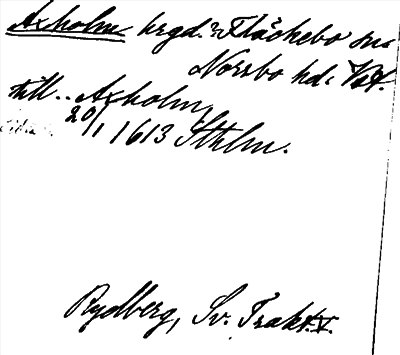 Axholm hrgd. i Fläckebo sn.
Norrbo hd. Vstm.
till.. Axholm,
20/1 1613 Sthlm.
Rydberg, Sv. Trakt. V.